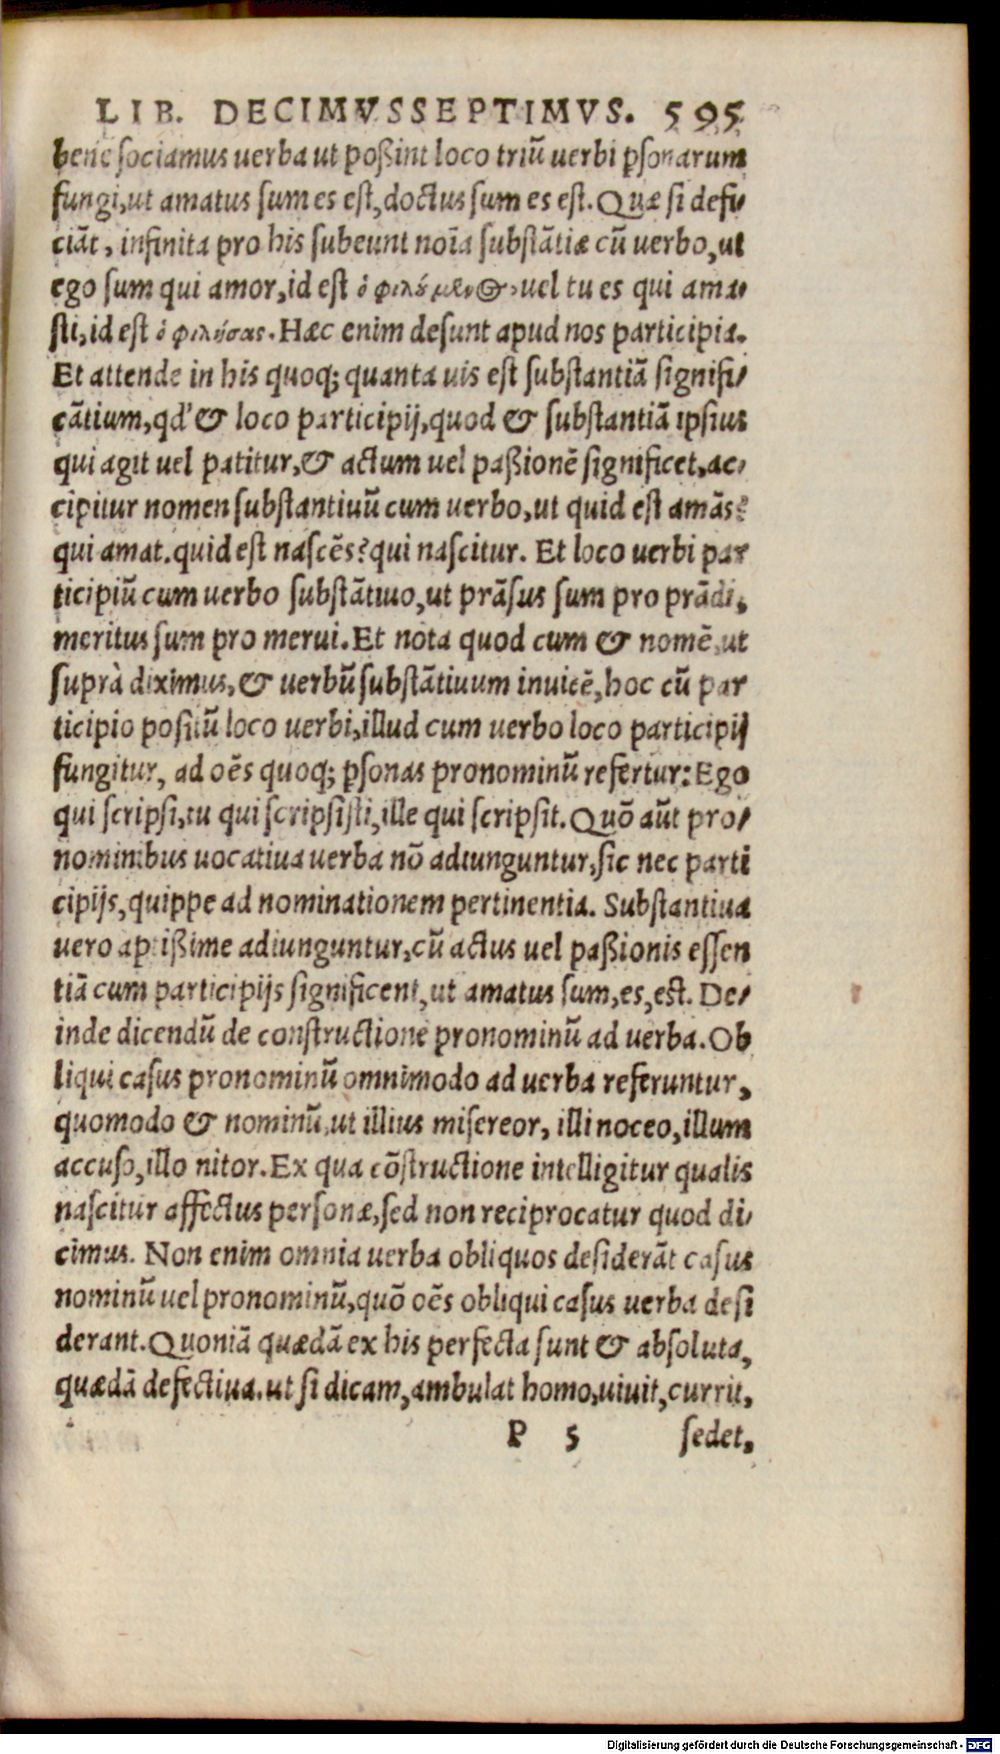 LIB. DECIMVSSEPTIMVS. 595
bene sociamus uerba ut poßint loco triũ uerbi psonarum
fungi, ut amatus sum es est, doctus sum es est. Quæ si defi/
ciãt, infinita pro his subeunt noĩa substãtiæ cũ uerbo, ut
ego sum qui amor, id est ὁ φιλούμενος, uel tu es qui ama/
sti, id est ὁ φιλήσας. Hæc enim desunt apud nos participia.
Et attende in his quoq; quanta uis est substantiã signifi/
cãtium, qd' & loco participij, quod & substantiã ipsius
qui agit uel patitur, & actum uel paßionẽ significet, ac/
cipitur nomen substantiuũ cum uerbo, ut quid est amãs?
qui amat. quid est nascẽs? qui nascitur. Et loco uerbi par
ticipiũ cum uerbo substãtiuo, ut prãsus sum pro prãdi,
meritus sum pro merui. Et nota quod cum & nomẽ, ut
suprà diximus, & uerbũ substãtiuum inuicẽ, hoc cũ par
ticipio positũ loco uerbi, illud cum uerbo loco participij
fungitur, ad oẽs quoq; psonas pronominũ refertur: Ego
qui scripsi, tu qui scripsisti, ille qui scripsit. Quõ aũt pro/
nominibus uocatiua uerba nõ adiunguntur, sic nec parti
cipijs, quippe ad nominationem pertinentia. Substantiua
uero aptißime adiunguntur, cũ actus uel paßionis essen
tiã cum participijs significent, ut amatus sum, es, est. De/
inde dicendũ de constructione pronominũ ad uerba. Ob
liqui casus pronominũ omnimodo ad uerba referuntur,
quomodo & nominũ, ut illius misereor, illi noceo, illum
accuso, illo nitor. Ex qua cõstructione intelligitur qualis
nascitur affectus personæ, sed non reciprocatur quod di/
cimus. Non enim omnia uerba obliquos desiderãt casus
nominũ uel pronominũ, quõ oẽs obliqui casus uerba desi
derant. Quoniã quædã ex his perfecta sunt & absoluta,
quædã defectiua. ut si dicam, ambulat homo, uiuit, currit,
P 5 sedet,
Digitalisierung gefördert durch die Deutsche Forschungsgemeinschaft - DFG